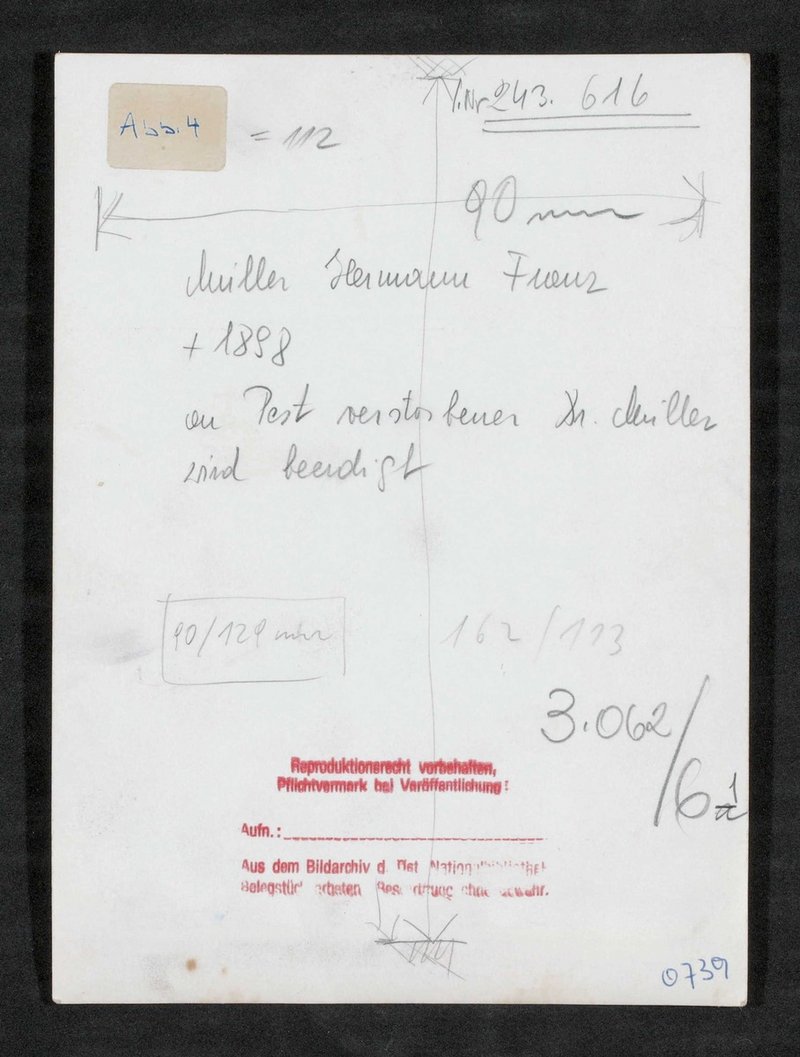 Abb. 4
= 112
I.Nr 243. 616
90 mm
Müller Hermann Franz
+ 1898
an Pest verstorbener Dr. Müller
wird beerdigt
90/129 mm
162/113
3.062/6
Reproduktionsrecht vorbehalten,
Pflichtvermerk bei Veröffentlichung:
Aufn.:
Aus dem Bildarchiv d. Öst. Nationalbibliothek
Belegstück erbeten ohne
0739